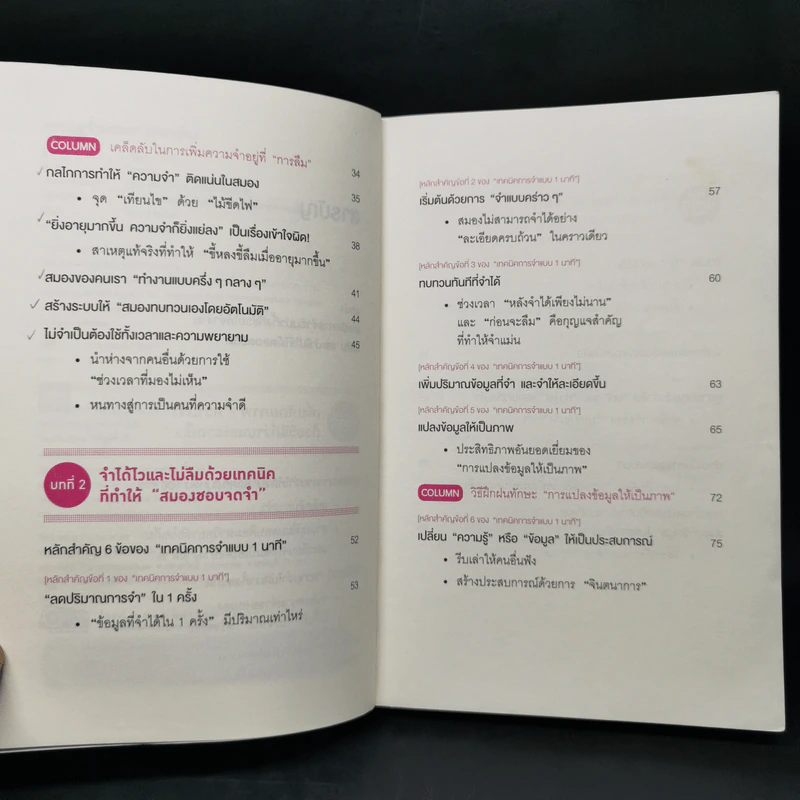 COLUMN เคล็ดลับในการเพิ่มความจำอยู่ที่ “การลืม” 34
กลไกการทำให้ “ความจำ” ติดแน่นในสมอง 35
• จุด “เทียนไข” ด้วย “ไม้ขีดไฟ”
“ยิ่งอายุมากขึ้น ความจำก็ยิ่งแย่ลง” เป็นเรื่องเข้าใจผิด! 38
• สาเหตุแท้จริงที่ทำให้ “ขี้หลงขี้ลืมเมื่ออายุมากขึ้น”
สมองของคนเรา “ทำงานแบบครึ่ง ๆ กลาง ๆ” 41
สร้างระบบให้ “สมองทบทวนเองโดยอัตโนมัติ” 44
ไม่จำเป็นต้องใช้ทั้งเวลาและความพยายาม 45
• นำห่างจากคนอื่นด้วยการใช้
“ช่วงเวลาที่มองไม่เห็น”
• หนทางสู่การเป็นคนที่ความจำดี
บทที่ 2 จำได้ไวและไม่ลืมด้วยเทคนิค
ที่ทำให้ “สมองชอบจดจำ”
หลักสำคัญ 6 ข้อของ “เทคนิคการจำแบบ 1 นาที” 52
[หลักสำคัญข้อที่ 1 ของ “เทคนิคการจำแบบ 1 นาที”]
“ลดปริมาณการจำ” ใน 1 ครั้ง 53
• “ข้อมูลที่จำได้ใน 1 ครั้ง” มีปริมาณเท่าไหร่
[หลักสำคัญข้อที่ 2 ของ “เทคนิคการจำแบบ 1 นาที”]
เริ่มต้นด้วยการ “จำแบบคร่าว ๆ” 57
• สมองไม่สามารถจำได้อย่าง
“ละเอียดครบถ้วน” ในคราวเดียว
[หลักสำคัญข้อที่ 3 ของ “เทคนิคการจำแบบ 1 นาที”]
ทบทวนทันทีที่จำได้ 60
• ช่วงเวลา “หลังจำได้เพียงไม่นาน”
และ “ก่อนจะลืม” คือกุญแจสำคัญ
ที่ทำให้จำแม่น
[หลักสำคัญข้อที่ 4 ของ “เทคนิคการจำแบบ 1 นาที”]
เพิ่มปริมาณข้อมูลที่จำ และจำให้ละเอียดขึ้น 63
[หลักสำคัญข้อที่ 5 ของ “เทคนิคการจำแบบ 1 นาที”]
แปลงข้อมูลให้เป็นภาพ 65
• ประสิทธิภาพอันยอดเยี่ยมของ
“การแปลงข้อมูลให้เป็นภาพ”
COLUMN วิธีฝึกฝนทักษะ “การแปลงข้อมูลให้เป็นภาพ” 72
[หลักสำคัญข้อที่ 6 ของ “เทคนิคการจำแบบ 1 นาที”]
เปลี่ยน “ความรู้” หรือ “ข้อมูล” ให้เป็นประสบการณ์ 75
• รีบเล่าให้คนอื่นฟัง
• สร้างประสบการณ์ด้วยการ “จินตนาการ”